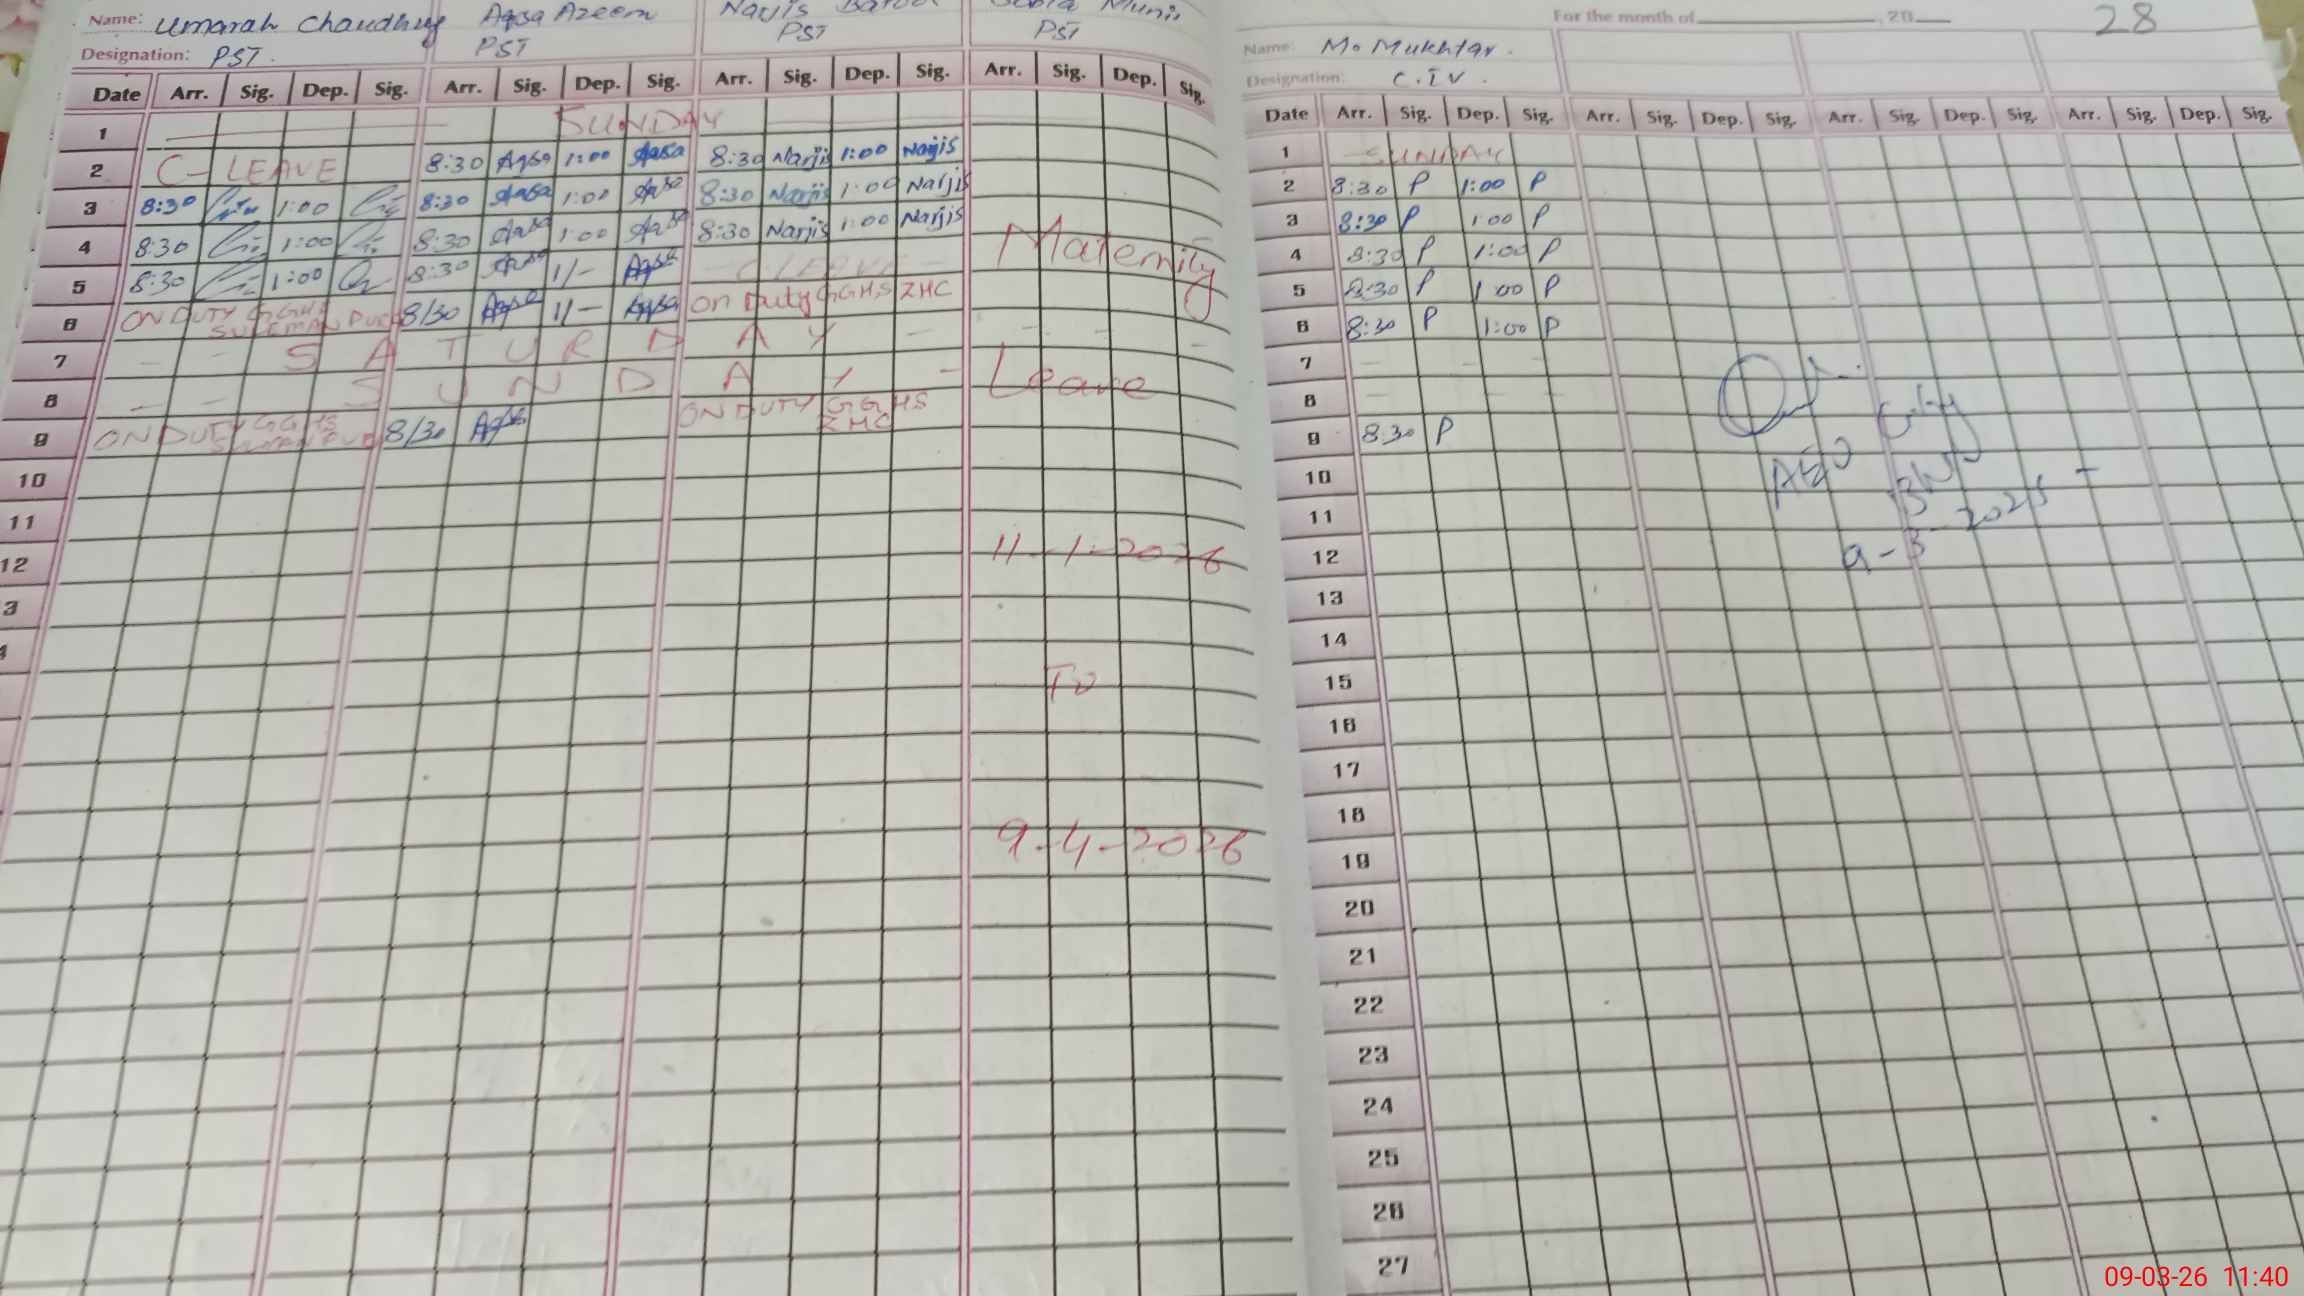 Name: Umarah Chaudhry Aqsa Azeem Narjis Batool Munir
Designation: PST. PST PST PST
Date Arr. Sig. Dep. Sig. Arr. Sig. Dep. Sig. Arr. Sig. Dep. Sig. Arr. Sig. Dep. Sig.
1 SUNDAY
2 C- LEAVE 8:30 Aqsa 1:00 Aqsa 8:30 Narjis 1:00 Narjis
3 8:30 1:00 8:30 Aqsa 1:00 Aqsa 8:30 Narjis 1:00 Narjis
4 8:30 1:00 8:30 Aqsa 1:00 Aqsa 8:30 Narjis 1:00 Narjis
Maternity
5 8:30 1:00 8:30 Aqsa 1/- Aqsa C LEAVE
6 ON DUTY GGHS SULEMAN PURA 8/30 Aqsa 1/- Aqsa On Duty GGHS ZHC
7 - - SATURDAY - - - -
8 - - SUNDAY - Leave
9 ON DUTY GGHS 8/30 Aqsa ON DUTY GGHS ZHC
10
11
12 11-1-2026
3
To
9-4-2026
For the month of , 20 28
Name: M. Mukhtar.
Designation: C. IV.
Date Arr. Sig. Dep. Sig. Arr. Sig. Dep. Sig. Arr. Sig. Dep. Sig. Arr. Sig. Dep. Sig.
1 SUNDAY
2 8:30 P 1:00 P
3 8:30 P 1:00 P
4 8:30 P 1:00 P
5 8:30 P 1:00 P
6 8:30 P 1:00 P
7 - - -
8 - - -
9 8:30 P
AEO City
BWP
9-3-2025
10
11
12
13
14
15
16
17
18
19
20
21
22
23
24
25
26
27
09-03-26 11:40